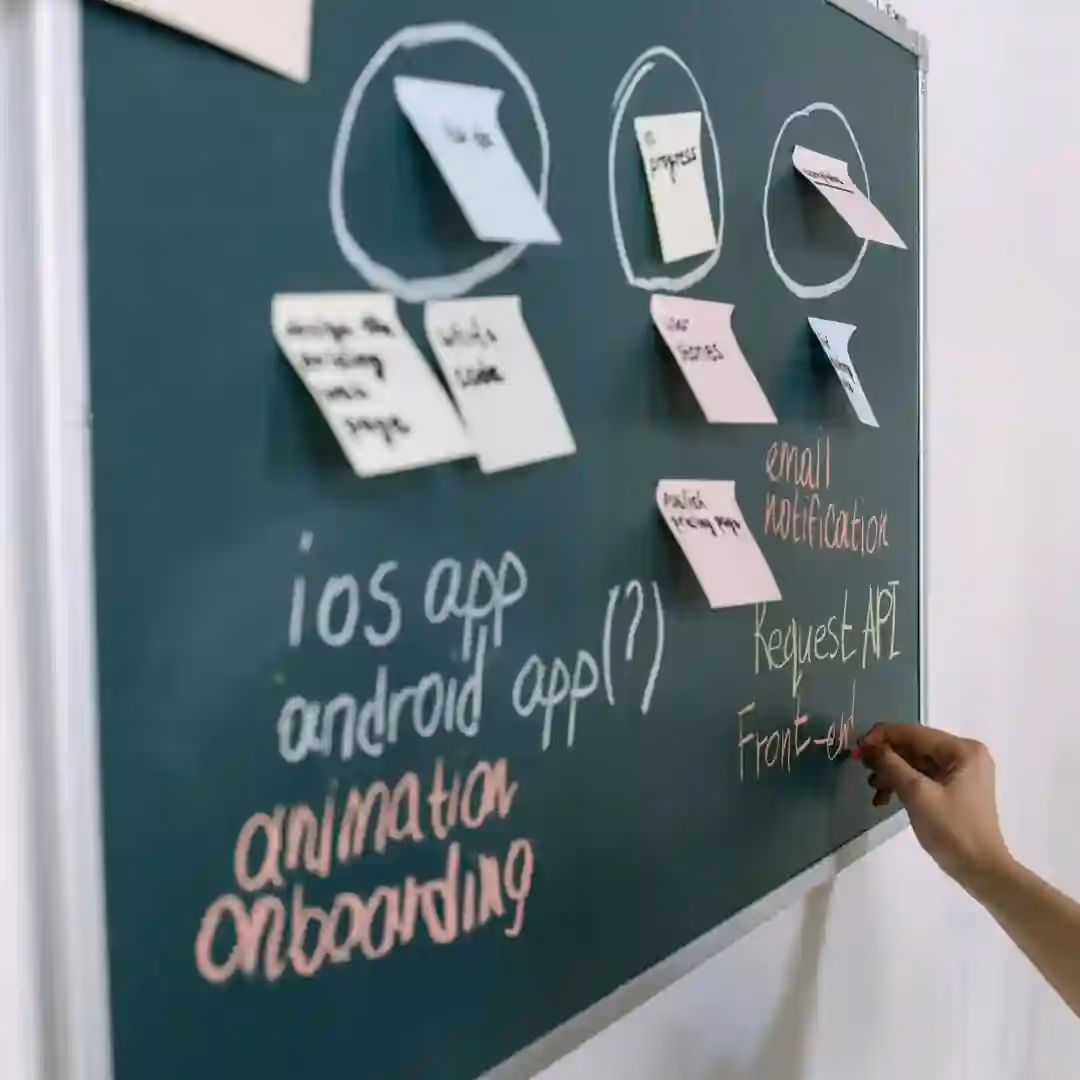 to do
in
progress
design the
pricing
web
page
write
code
user
stories
publish
pricing page
email
notification
Request API
Front-end
ios app
android app(?)
animation
onboarding